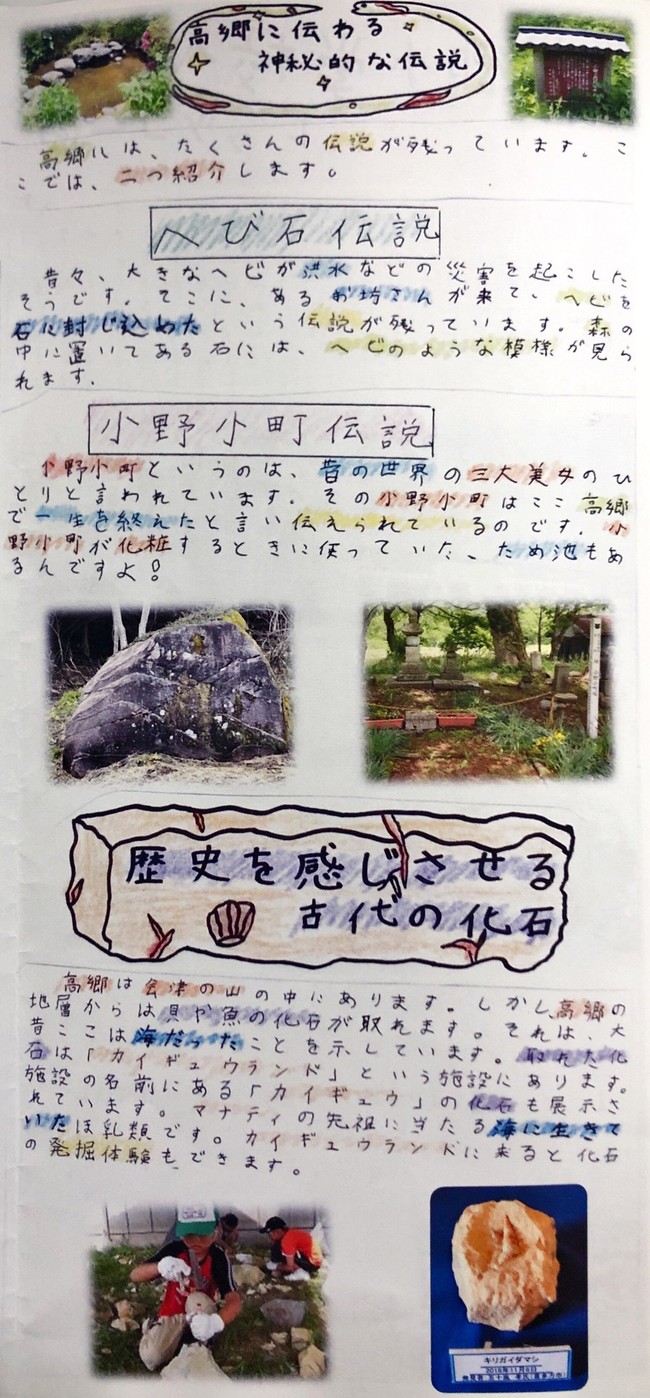 高郷に伝わる
神秘的な伝説
高郷には、たくさんの伝説が残っています。こ
こでは、二つ紹介します。
へび石伝説
昔々、大きなヘビが洪水などの災害を起こした
そうです。そこに、あるお坊さんが来て、ヘビを
石に封じ込めたという伝説が残っています。森の
中に置いてある石には、ヘビのような模様が見ら
れます。
小野小町伝説
小野小町というのは、昔の世界の三大美女のひ
とりと言われています。その小野小町はここ高郷
で一生を終えたと言い伝えられているのです。小
野小町が化粧するときに使っていた、ため池もあ
るんですよ!
歴史を感じさせる
古代の化石
高郷は会津の山の中にあります。しかし、高郷の
地層からは貝や魚の化石が取れます。それは、大
昔ここは海だったことを示しています。取れた化
石は「カイギュウランド」という施設にあります。
施設の名前にある「カイギュウ」の化石も展示さ
れています。マナティの先祖に当たる海に生きて
いたほ乳類です。カイギュウランドに来ると化石
の発掘体験もできます。
キリガイダマシ
2016年11月6日